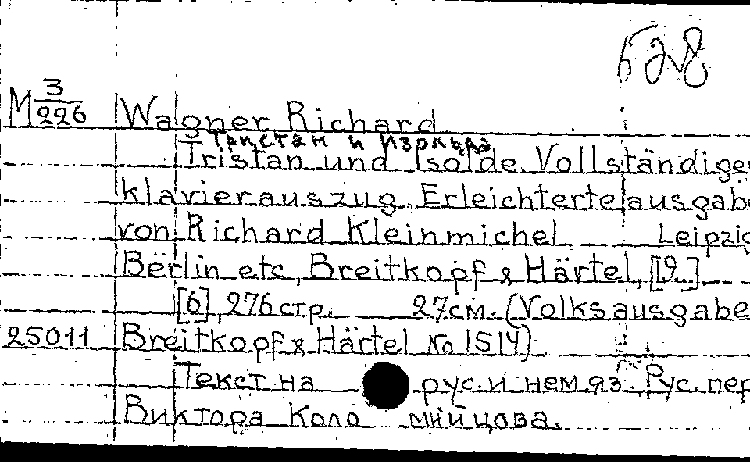 628
M 3/226 Wagner Richard
Тристан и Изольда
Tristan und Isolde. Vollständiger
klavierauszug. Erleichterte ausgabe
von Richard Kleinmichel Leipzig
Berlin etc, Breitkopf & Härtel, [19..]
[6], 276 стр. 27см. (Volksausgabe
25011 Breitkopf & Härtel № 1514)
Текст на рус. и нем. яз. Рус. пер
Виктора Коло мийцова.